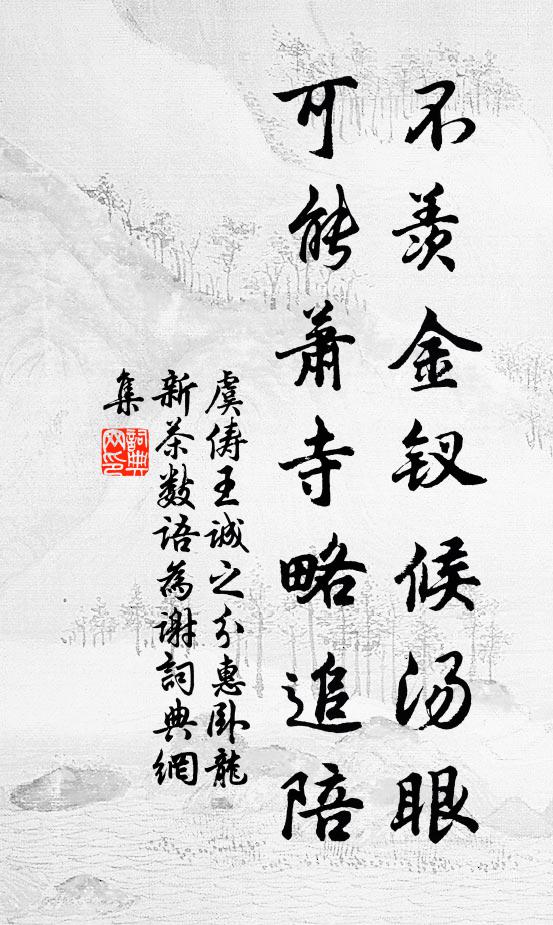 不羡金钗候汤眼
可能萧寺略追陪
虞俦王诚之分惠卧龙
新茶数语为谢词典網
集
詞典網印